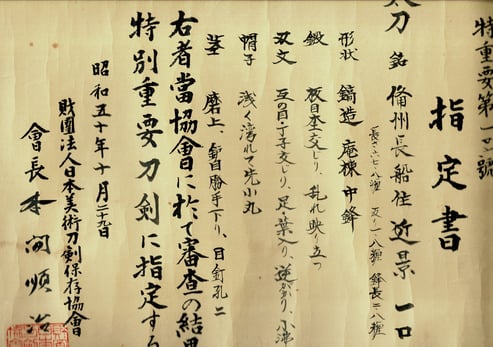 特重要第一〇號
指定書
太刀 銘 備州長船住近景 一口
長さ六七・八糎 反り一・八糎 鋒長二・八糎
形状 鎬造 庵棟 中鋒
鍛 板目杢交じり、乱れ映り立つ
刃文 互の目丁子交じり、足・葉入り、逆がかり、小沸
帽子 浅く湾れて先小丸
茎 磨上、鑢目勝手下り、目釘孔二
右者當協會に於て審査の結果
特別重要刀剣に指定する
昭和五十年十月二十五日
財團法人日本美術刀剣保存協會
會長 本間順治